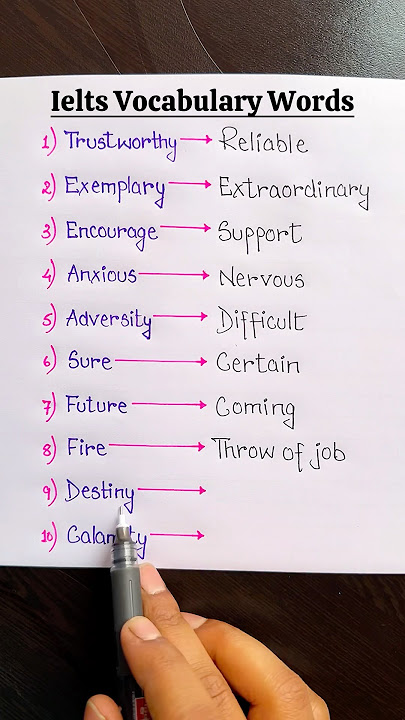 Ielts Vocabulary Words
1) Trustworthy → Reliable
2) Exemplary → Extraordinary
3) Encourage → Support
4) Anxious → Nervous
5) Adversity → Difficult
6) Sure → Certain
7) Future → Coming
8) Fire → Throw of job
9) Destiny →
10) Calamity →